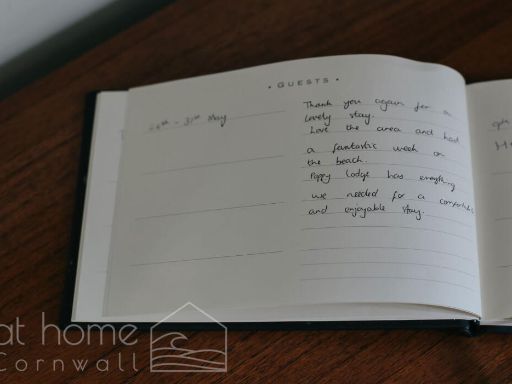 • GUESTS •
24th - 31st May
Thank you again for a
lovely stay.
Love the area and had
a fantastic week on
the beach.
Poppy Lodge has everything
we needed for a comfortable
and enjoyable stay.
at home
Cornwall